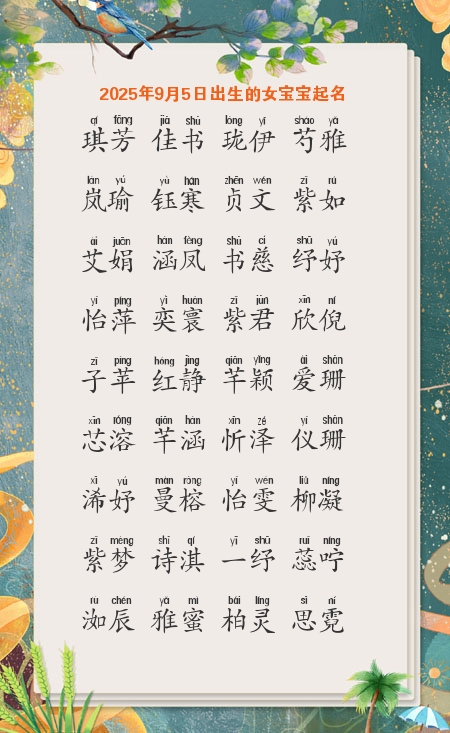 2025年9月5日出生的女宝宝起名
qí fāng jiā shū lóng yī sháo yǎ
琪芳 佳书 珑伊 芍雅
lán yú yù hán zhēn wén zǐ rú
岚瑜 钰寒 贞文 紫如
ài juān hán fèng shū cí shū yú
艾娟 涵凤 书慈 纾妤
yí píng yì huán zǐ jūn xīn ní
怡萍 奕寰 紫君 欣倪
zǐ píng hóng jìng qiān yǐng ài shān
子苹 红静 芊颖 爱珊
xīn róng qiān hán xīn zé yí shān
芯溶 芊涵 忻泽 仪珊
xī yú màn róng yí wén liǔ níng
浠妤 曼榕 怡雯 柳凝
zǐ mèng shī qí yī shū ruǐ níng
紫梦 诗淇 一纾 蕊咛
rù chén yǎ mì bǎi líng sī ní
洳辰 雅蜜 柏灵 思霓